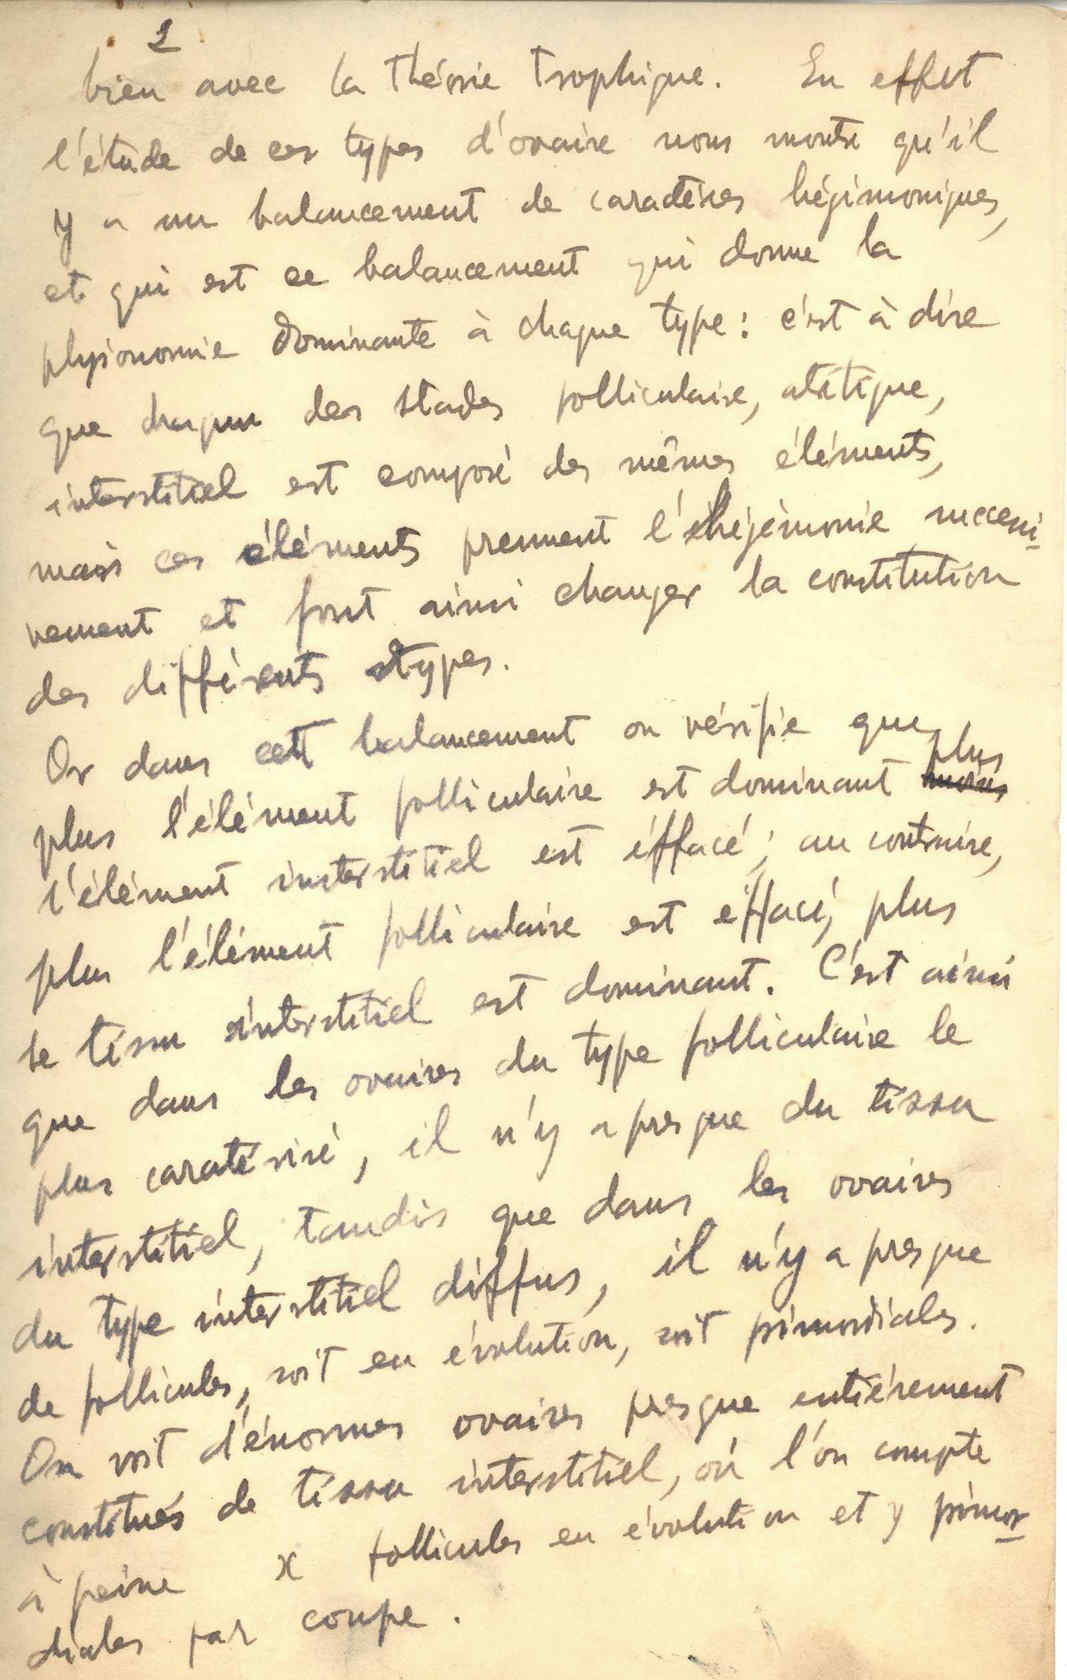 2
bien avec la théorie trophique. En effet
l'étude de ces types d'ovaire nous montre qu'il
y a un balancement de caratères hégémoniques,
et qui est ce balancement qui donne la
physionomie dominante à chaque type : c'est à dire
que chaqun des stades folliculaire, atétique,
interstitiel est composé des mêmes éléments,
mais ces éléments prennent l'éhégémonie successi-
vement et font ainsi changer la constitution
des différents types.
Or dans cett balancement on vérifie que
plus
plus l'élément folliculaire est dominant moins
l'élément interstitiel est éffacé ; au contraire,
plus l'élément folliculaire est éffacé, plus
le tissu interstitiel est dominant. C'est ainsi
que dans les ovaires du type folliculaire le
plus caratérisé, il n'y a presque du tissu
interstitiel, tandis que dans les ovaires
du type interstitiel diffus, il n'y a presque
de follicules, soit en évolution, soit primordiales.
On voit d'énormes ovaires presque entiérement
constitués de tissu interstitiel, où l'on compte
à peine x follicules en évolution et y primor-
diales par coupe.